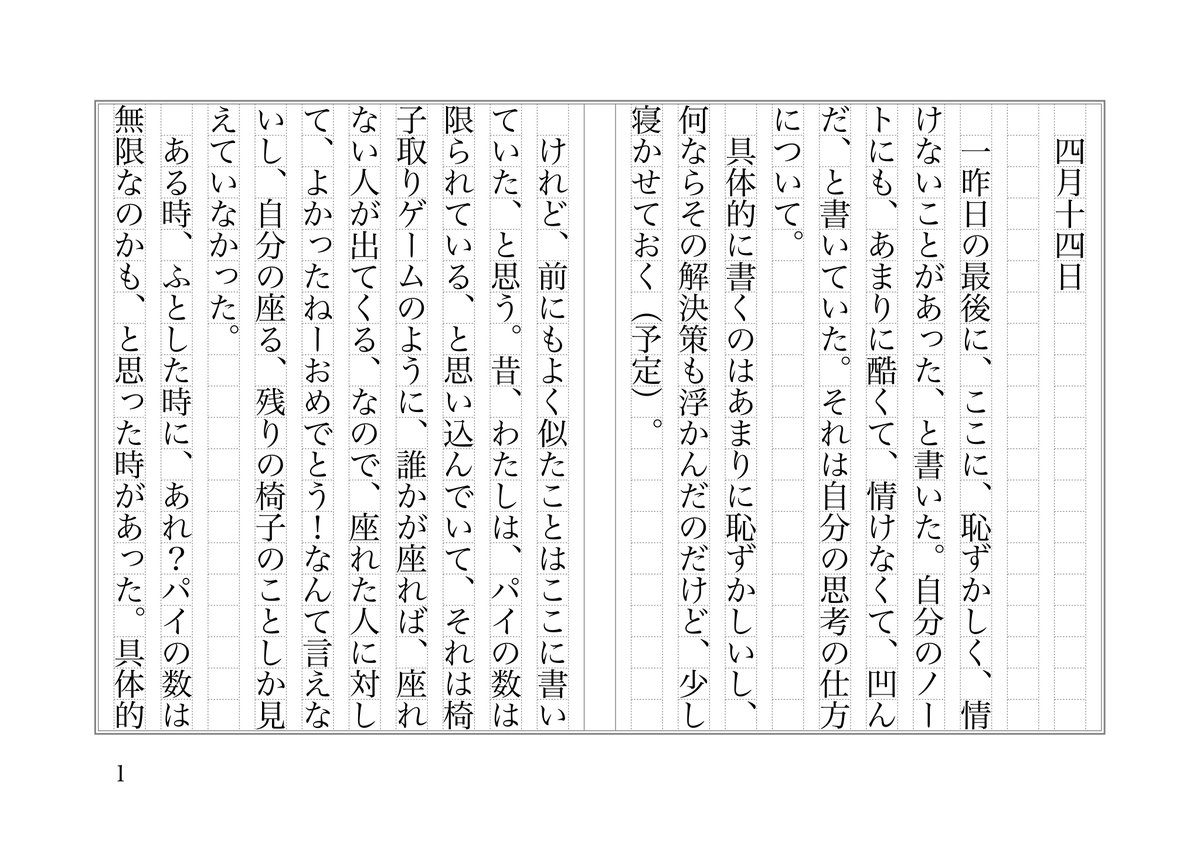 四月十四日
一昨日の最後に、ここに、恥ずかしく、情
けないことがあった、と書いた。自分のノー
トにも、あまりに酷くて、情けなくて、凹ん
だ、と書いていた。それは自分の思考の仕方
について。
具体的に書くのはあまりに恥ずかしいし、
何ならその解決策も浮かんだのだけど、少し
寝かせておく（予定）。
けれど、前にもよく似たことはここに書い
ていた、と思う。昔、わたしは、パイの数は
限られている、と思い込んでいて、それは椅
子取りゲームのように、誰かが座れば、座れ
ない人が出てくる、なので、座れた人に対し
て、よかったねーおめでとう！なんて言えな
いし、自分の座る、残りの椅子のことしか見
えていなかった。
ある時、ふとした時に、あれ？パイの数は
無限なのかも、と思った時があった。具体的
1